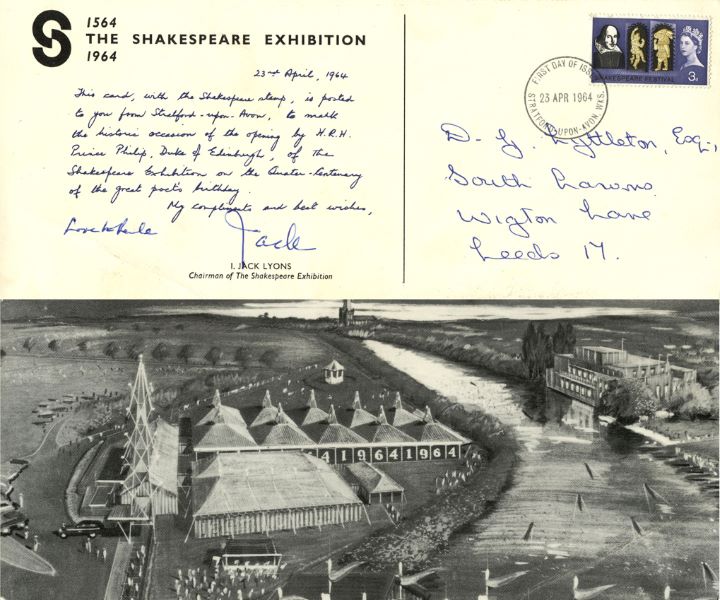 1564
THE SHAKESPEARE EXHIBITION
1964
23rd April, 1964
This card, with the Shakespeare stamp, is posted
to you from Stratford-upon-Avon, to mark
the historic occasion of the opening by H.R.H.
Prince Philip, Duke of Edinburgh, of the
Shakespeare Exhibition on the Quater-Centenary
of the great poet's birthday.
My compliments and best wishes,
Love to
Jack
I. JACK LYONS
Chairman of The Shakespeare Exhibition
SHAKESPEARE FESTIVAL
3D
FIRST DAY OF ISSUE
23 APR 1964
STRATFORD-UPON-AVON, WKS.
D. Lyttleton, Esq.,
South Lawns
Wigton Lane
Leeds 17.
1964 1964